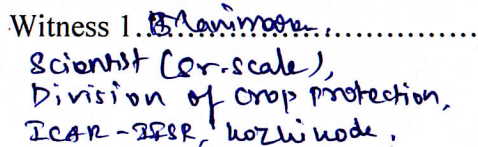 Witness 1..Manimaran..................
Scientist (Sr. scale),
Division of crop protection,
ICAR-IISR, Kozhikode.